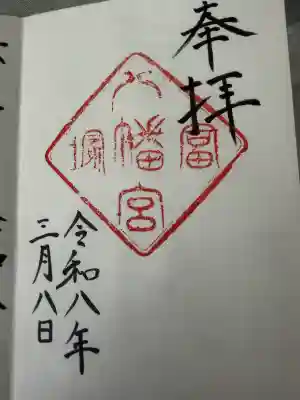 奉拝
富塚
八幡宮
令和八年
三月八日